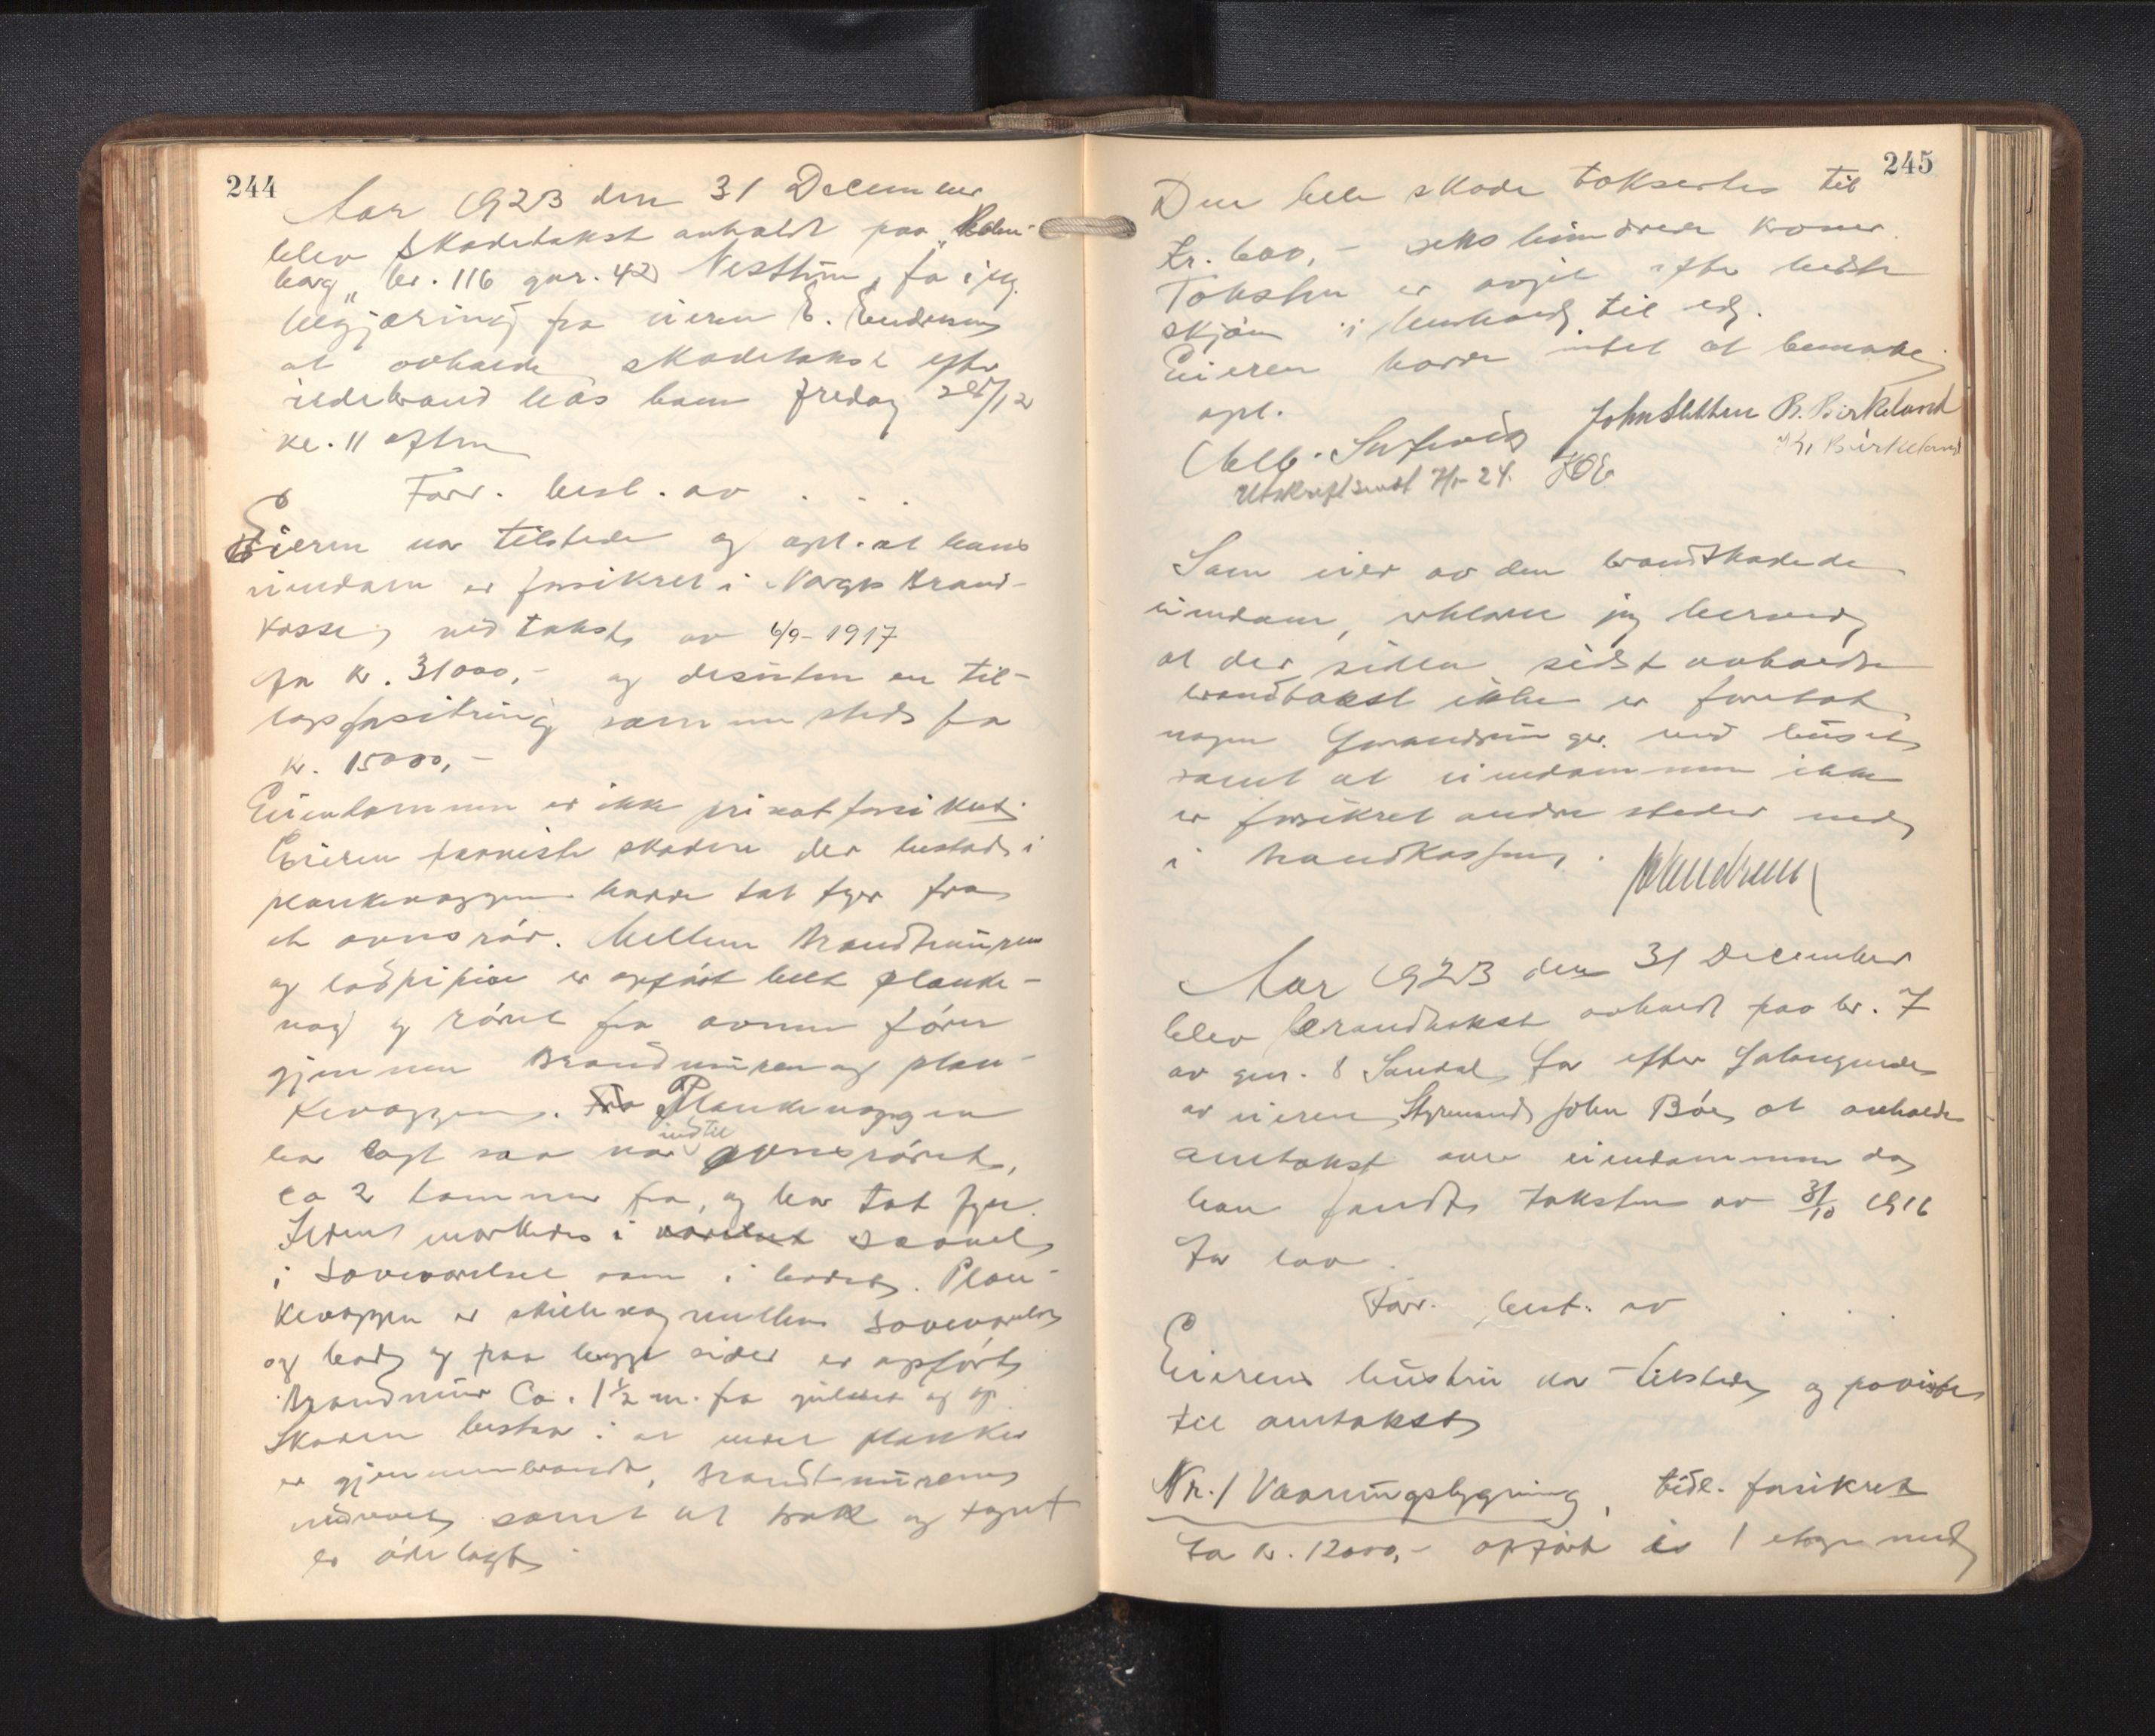 244
Aar 1923 den 31 December
blev skadetakst avholdt paa
br. 116 gnr. 42 Nesttun, fo
begjæring fra eieren E. Endresen
at avholde skadetakst efter
ildebrand hos ham fredag 28/12
kl. 11 aften
Forr. best. av . . .
Eieren var tilstede og opl. at hans
eiendom er forsikret i Norges Brand-
kasse, ved takst av 6/9-1917
for kr. 31000,- og desuten en til-
lægsforsikring samme sted for
kr. 15000,-
Eiendommen er ikke privat forsikret.
Eieren paaviste skaden der bestod i
plankevæggen hadde tat fyr fra
et ovnsrör. Mellem brandmuren
og lodpipen er opfört helt planke-
væg og röret fra ovnen förer
gjennem brandmuren og plan-
kevæggen. Plankevæggen
har lagt saa nær indtil ovnsröret,
ca 2 tommer fra, og har tat fyr.
Ilden merkedes i saavel
i soveværelset som i badet. Plan-
kevæggen er skillevæg mellem soveværelse
og bad og paa begge sider er opfört
brandmur ca. 1½ m. fra gulvet og op.
Skaden bestaar i at endel planker
er gjennembrændt, brandmuren
nedrevet samt at tak og
er ödelagt.
245
Den hele skade taksertes til
kr. 600,- seks hundrede kroner.
Taksten er avgit efter bedste
skjön i henhold til ed.
Eieren hadde intet at bemerke
opl.
John Sletten B. Birkeland
Kr. Birkeland
Utskrift sendt 7/1-24. KOE
Som eier av den brandskadede
eiendom, erklærer jeg herved,
at der siden sidst avholdte
brandtakst ikke er foretat
nogen forandringer ved huset
samt at eiendommen ikke
er forsikret andre steder end
i brandkassen.
Endresen
Aar 1923 den 31 December
blev brandtakst avholdt paa br. 7
av gnr. 8 Sandal, for efter forlangende
av eieren, Styrmand John Böe, at avholde
omtakst over eiendommen da
han fandt taksten av 31/10 1916
for lav.
Forr. best. av . . .
Eierens hustru var tilstede og paaviste
til omtakst
Nr. 1 Vaaningsbygning, tidl. forsikret
for kr. 12000,- opfört i 1 etage med